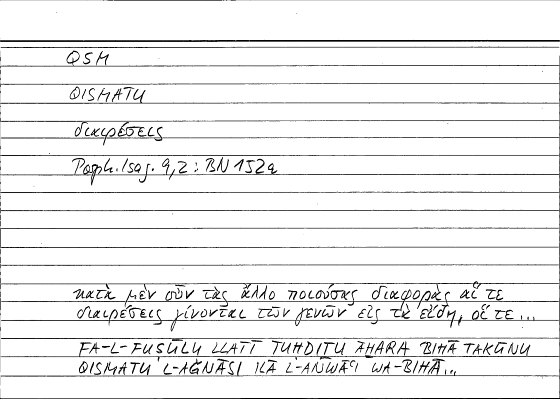 QSM
QISMATU
διαιρέσεις
Porph. Isag. 9,2 : BN 152a
κατὰ μὲν οὖν τὰς ἄλλο ποιούσας διαφορὰς αἵ τε
διαιρέσεις γίνονται τῶν γενῶν εἰς τὰ εἴδη, οἵ τε...
FA-L-FUṢŪLU LLATĪ TUḤDIṮU ĀḪARA BIHĀ TAKŪNU
QISMATU L-AǦNĀSI ILĀ L-ANWĀʿI WA-BIHĀ...